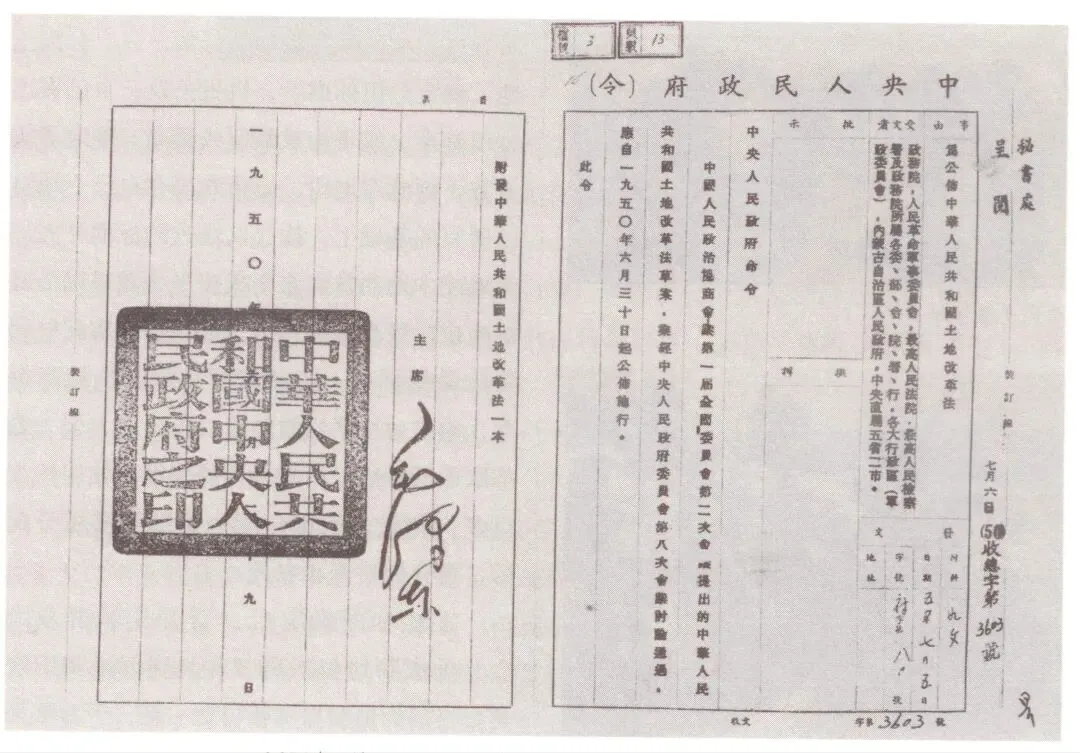 檔號 3
件數 13
中央人民政府（令）
秘書處
呈閱
七月六日
(50)收總字第3603號
裝訂線
事由
為公佈中華人民共和國土地改革法
受文者
政務院，人民革命軍事委員會，最高人民法院，最高人民檢察
署及政務院所屬各委、部、會、院、署、行，各大行政區（軍
政委員會），內蒙古自治區人民政府，中央直屬五省二市。
批示
擬辦
發文
附件
日期 五〇年七月五日
字號 號
地址
中央人民政府命令
中國人民政治協商會議第一屆全國委員會第二次會議提出的中華人民
共和國土地改革法草案，業經中央人民政府委員會第八次會議討論通過。
應自一九五〇年六月三十日起公佈施行。
此令
收文 字第3603號
附發中華人民共和國土地改革法一本
主席 毛澤東
一九五〇年 月 十九日
中華人民共
和國中央人
民政府之印
裝訂線